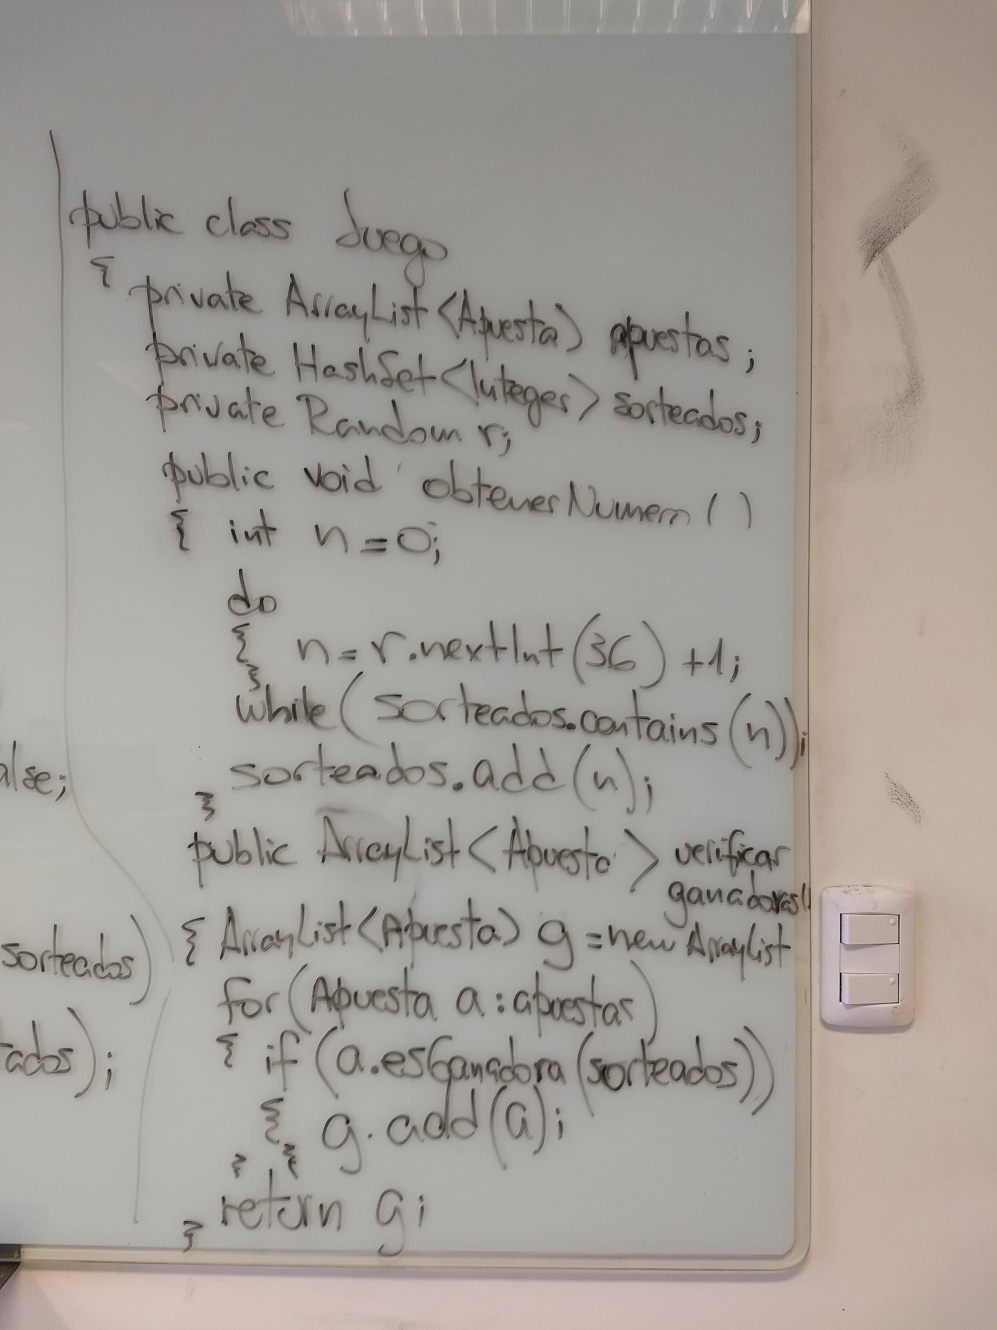 public class Juego
{ private ArrayList<Apuesta> apuestas;
private HashSet<Integer> sorteados;
private Random r;
public void obtenerNumero()
{ int n=0;
do
{ n=r.nextInt(36)+1;
}
while(sorteados.contains(n));
sorteados.add(n);
}
public ArrayList<Apuesta> verificar
ganadoras()
{ ArrayList<Apuesta> g=new ArrayList
for(Apuesta a:apuestas)
{ if(a.esGanadora(sorteados))
{ g.add(a);
} }
return g;
}
alse;
sorteados)
tados);